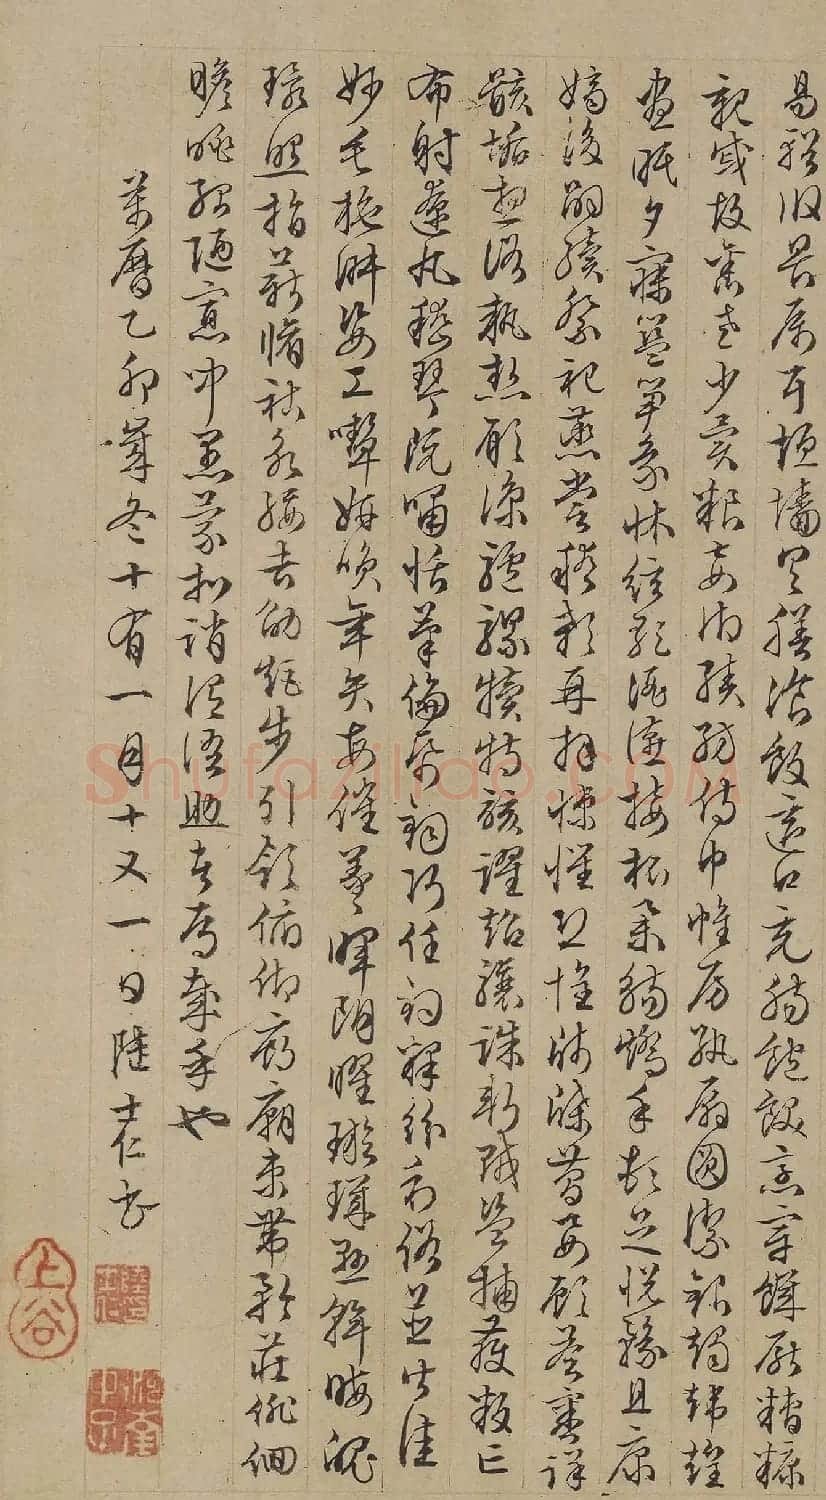 易輶攸畏屬耳垣墻具膳飡飯適口充腸飽飫烹宰饑厭糟糠
親戚故舊老少異粮妾御績紡侍巾帷房紈扇圓潔銀燭煒煌
晝眠夕寐籃笋象牀弦歌酒讌接杯舉觴矯手頓足悅豫且康
嫡後嗣續祭祀蒸嘗稽顙再拜悚懼恐惶牋牒簡要顧答審詳
骸垢想浴執熱願涼驢騾犢特駭躍超驤誅斬賊盜捕獲叛亡
布射遼丸嵇琴阮嘯恬筆倫紙鈞巧任釣釋紛利俗並皆佳
妙毛施淑姿工顰妍笑年矢每催羲暉朗曜璇璣懸斡晦魄
環照指薪脩祜永綏吉劭矩步引領俯仰廊廟束帶矜莊徘徊
瞻眺孤陋寡聞愚蒙等誚謂語助者焉哉乎也
萬曆乙卯歲冬十有一月十又一日陸士仁書
上谷
Shufaziliao.com